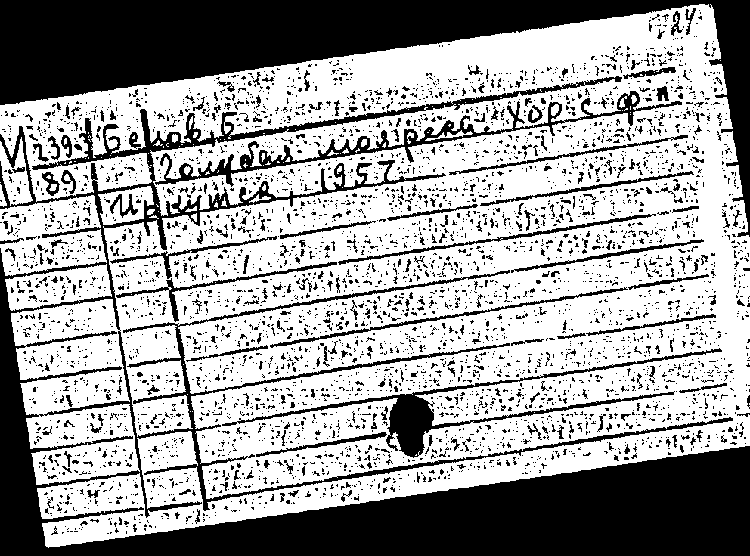 24
М 239-3 Белов, Б
89 Голубая моя река. Хор с ф-п.
Иркутск, 1957.